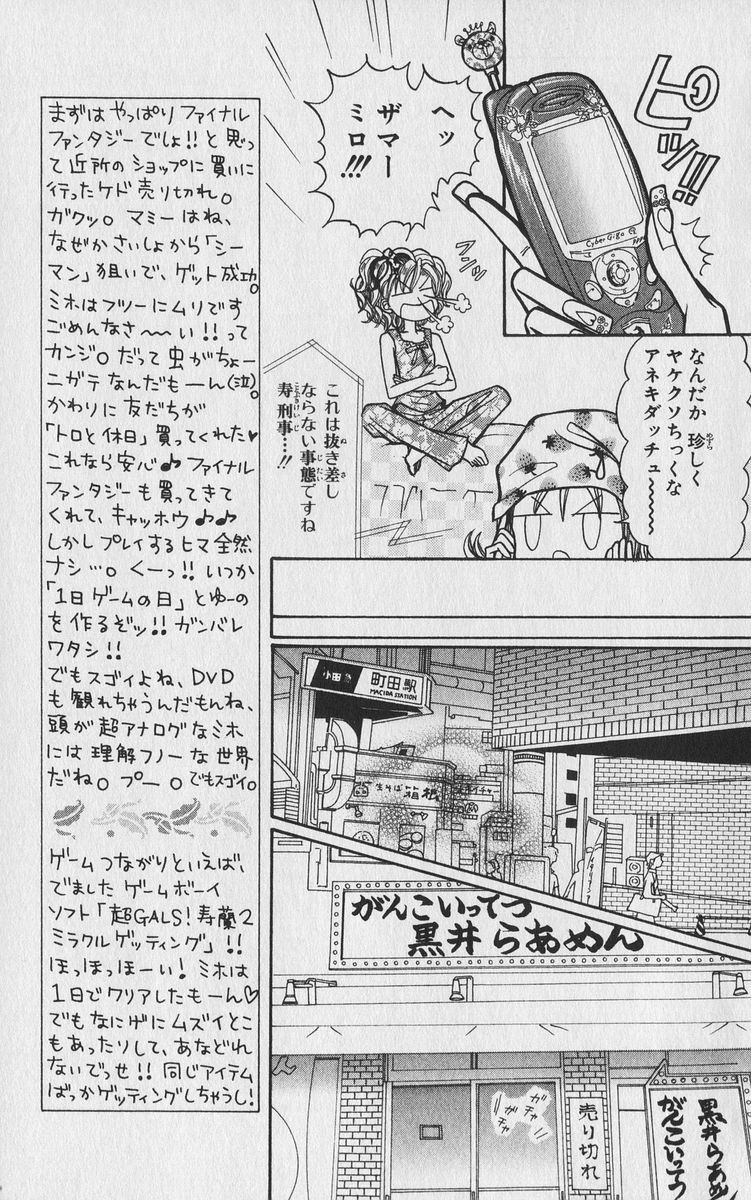 ピッ!!
Cyber Giga
ヘッ
ザマー
ミロ!!!
なんだか 珍しく
めずら
ヤケクソちっくな
アネキダッチュ〜〜〜
これは抜き差し
ぬ さ
ならない事態ですね
じたい
寿刑事…!!
ことぶきけいじ
小田急
町田駅
MACIDA STATION
生そば 箱根
がんこいってつ
黒井らあめん
ガチャ
ガチャ
売り切れ
黒井らあめ
がんこいってつ
まずは やっぱり ファイナル
ファンタジーでしょ!!と思っ
て近所のショップに買いに
行ったケド売り切れ。
ガクッ。マミーはね、
なぜかさいしょから「シー
マン」狙いで、ゲット成功。
ミホはフツーにムリです
ごめんなさ〜〜い!!って
カンジ。だって虫がちょー
ニガテなんだもーん(泣)。
かわりに友だちが
「トロと休日」買ってくれた♥
これなら安心♪ファイナル
ファンタジーも買ってきて
くれて、キャッホウ♪♪
しかしプレイするヒマ全然
ナシ…。くーっ!!いつか
「1日ゲームの日」とゆーの
を作るぞッ!!ガンバレ
ワタシ!!
でもスゴイよね、DVD
も観れちゃうんだもんね、
頭が超アナログなミホ
には理解フノーな世界
だね。プー。でもスゴイ。
ゲームつながりといえば、
でましたゲームボーイ
ソフト「超GALS!寿蘭2
ミラクルゲッティング」!!
ほっほっほーい!ミホは
1日でクリアしたもーん♡
でもなにげにムズイとこ
もあったりして、あなどれ
ないでっせ!!同じアイテム
ばっかゲッティングしちゃうし!